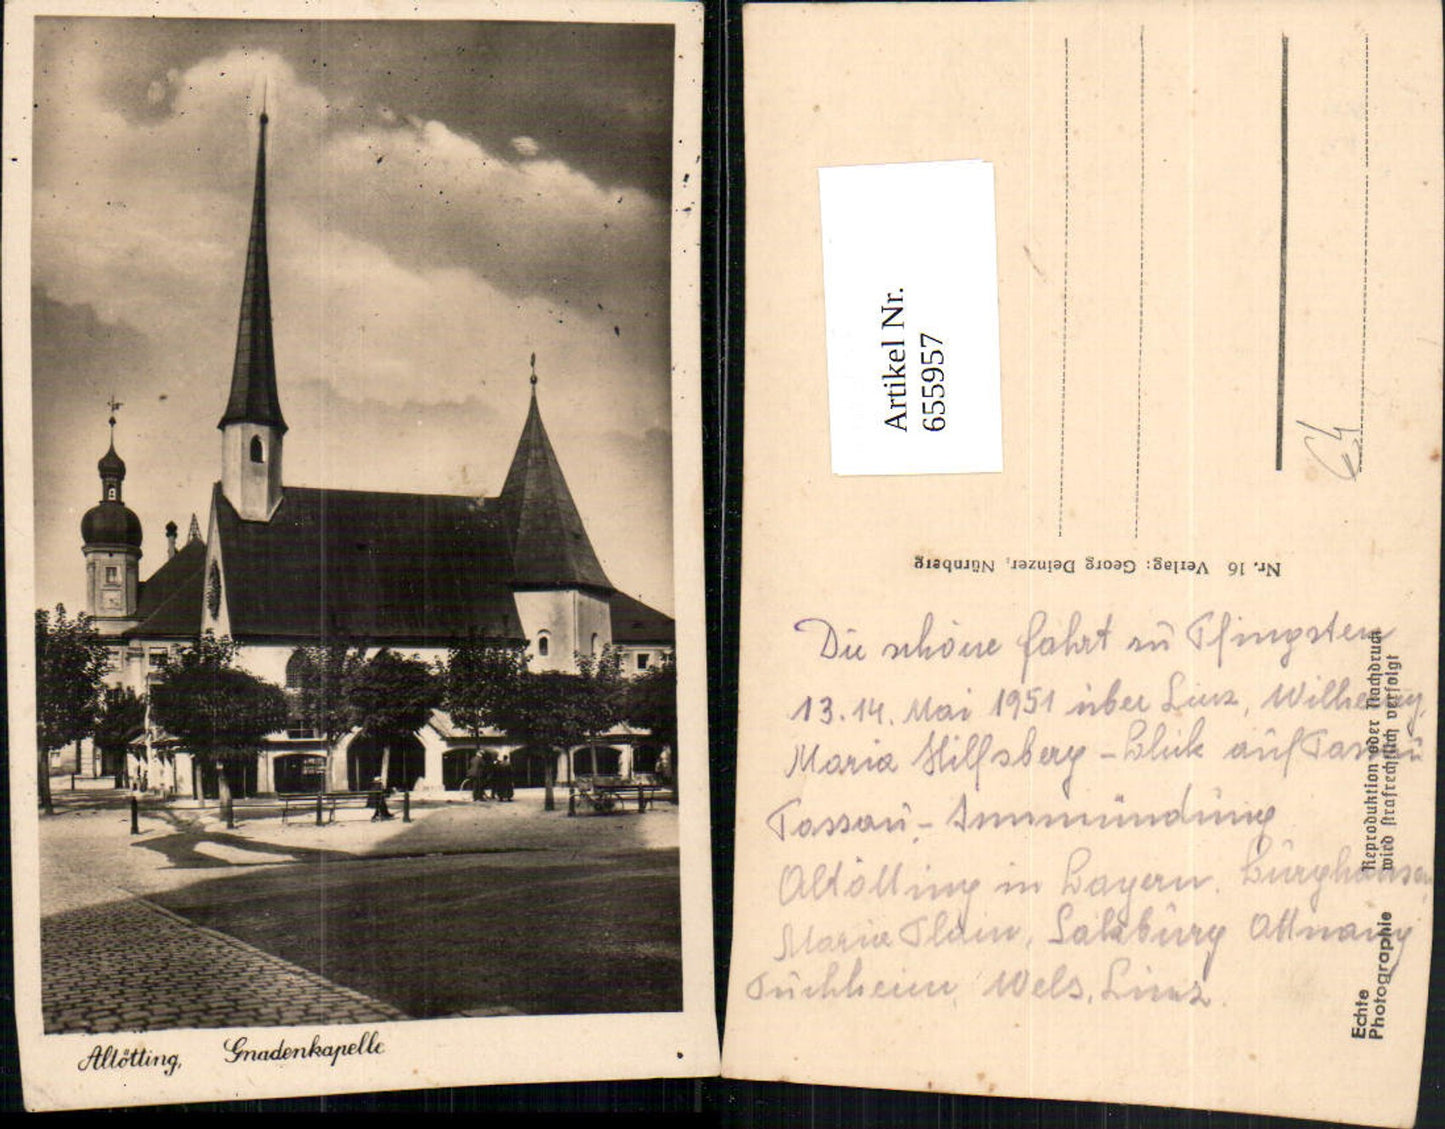 Altötting, Gnadenkapelle
Artikel Nr.
655957
64
Nr. 16 Verlag: Georg Deinzer, Nürnberg
Die schöne Fahrt zu Pfingsten
13. 14. Mai 1951 über Linz,
Maria Hilfsberg - Blick auf Passau
Passau - Innmündung
Altötting in Bayern. Burghausen,
Maria Plain, Salzburg Attnang
Puchheim, Wels, Linz.
Echte
Photographie
Reproduktion oder Nachdruck
wird strafrechtlich verfolgt